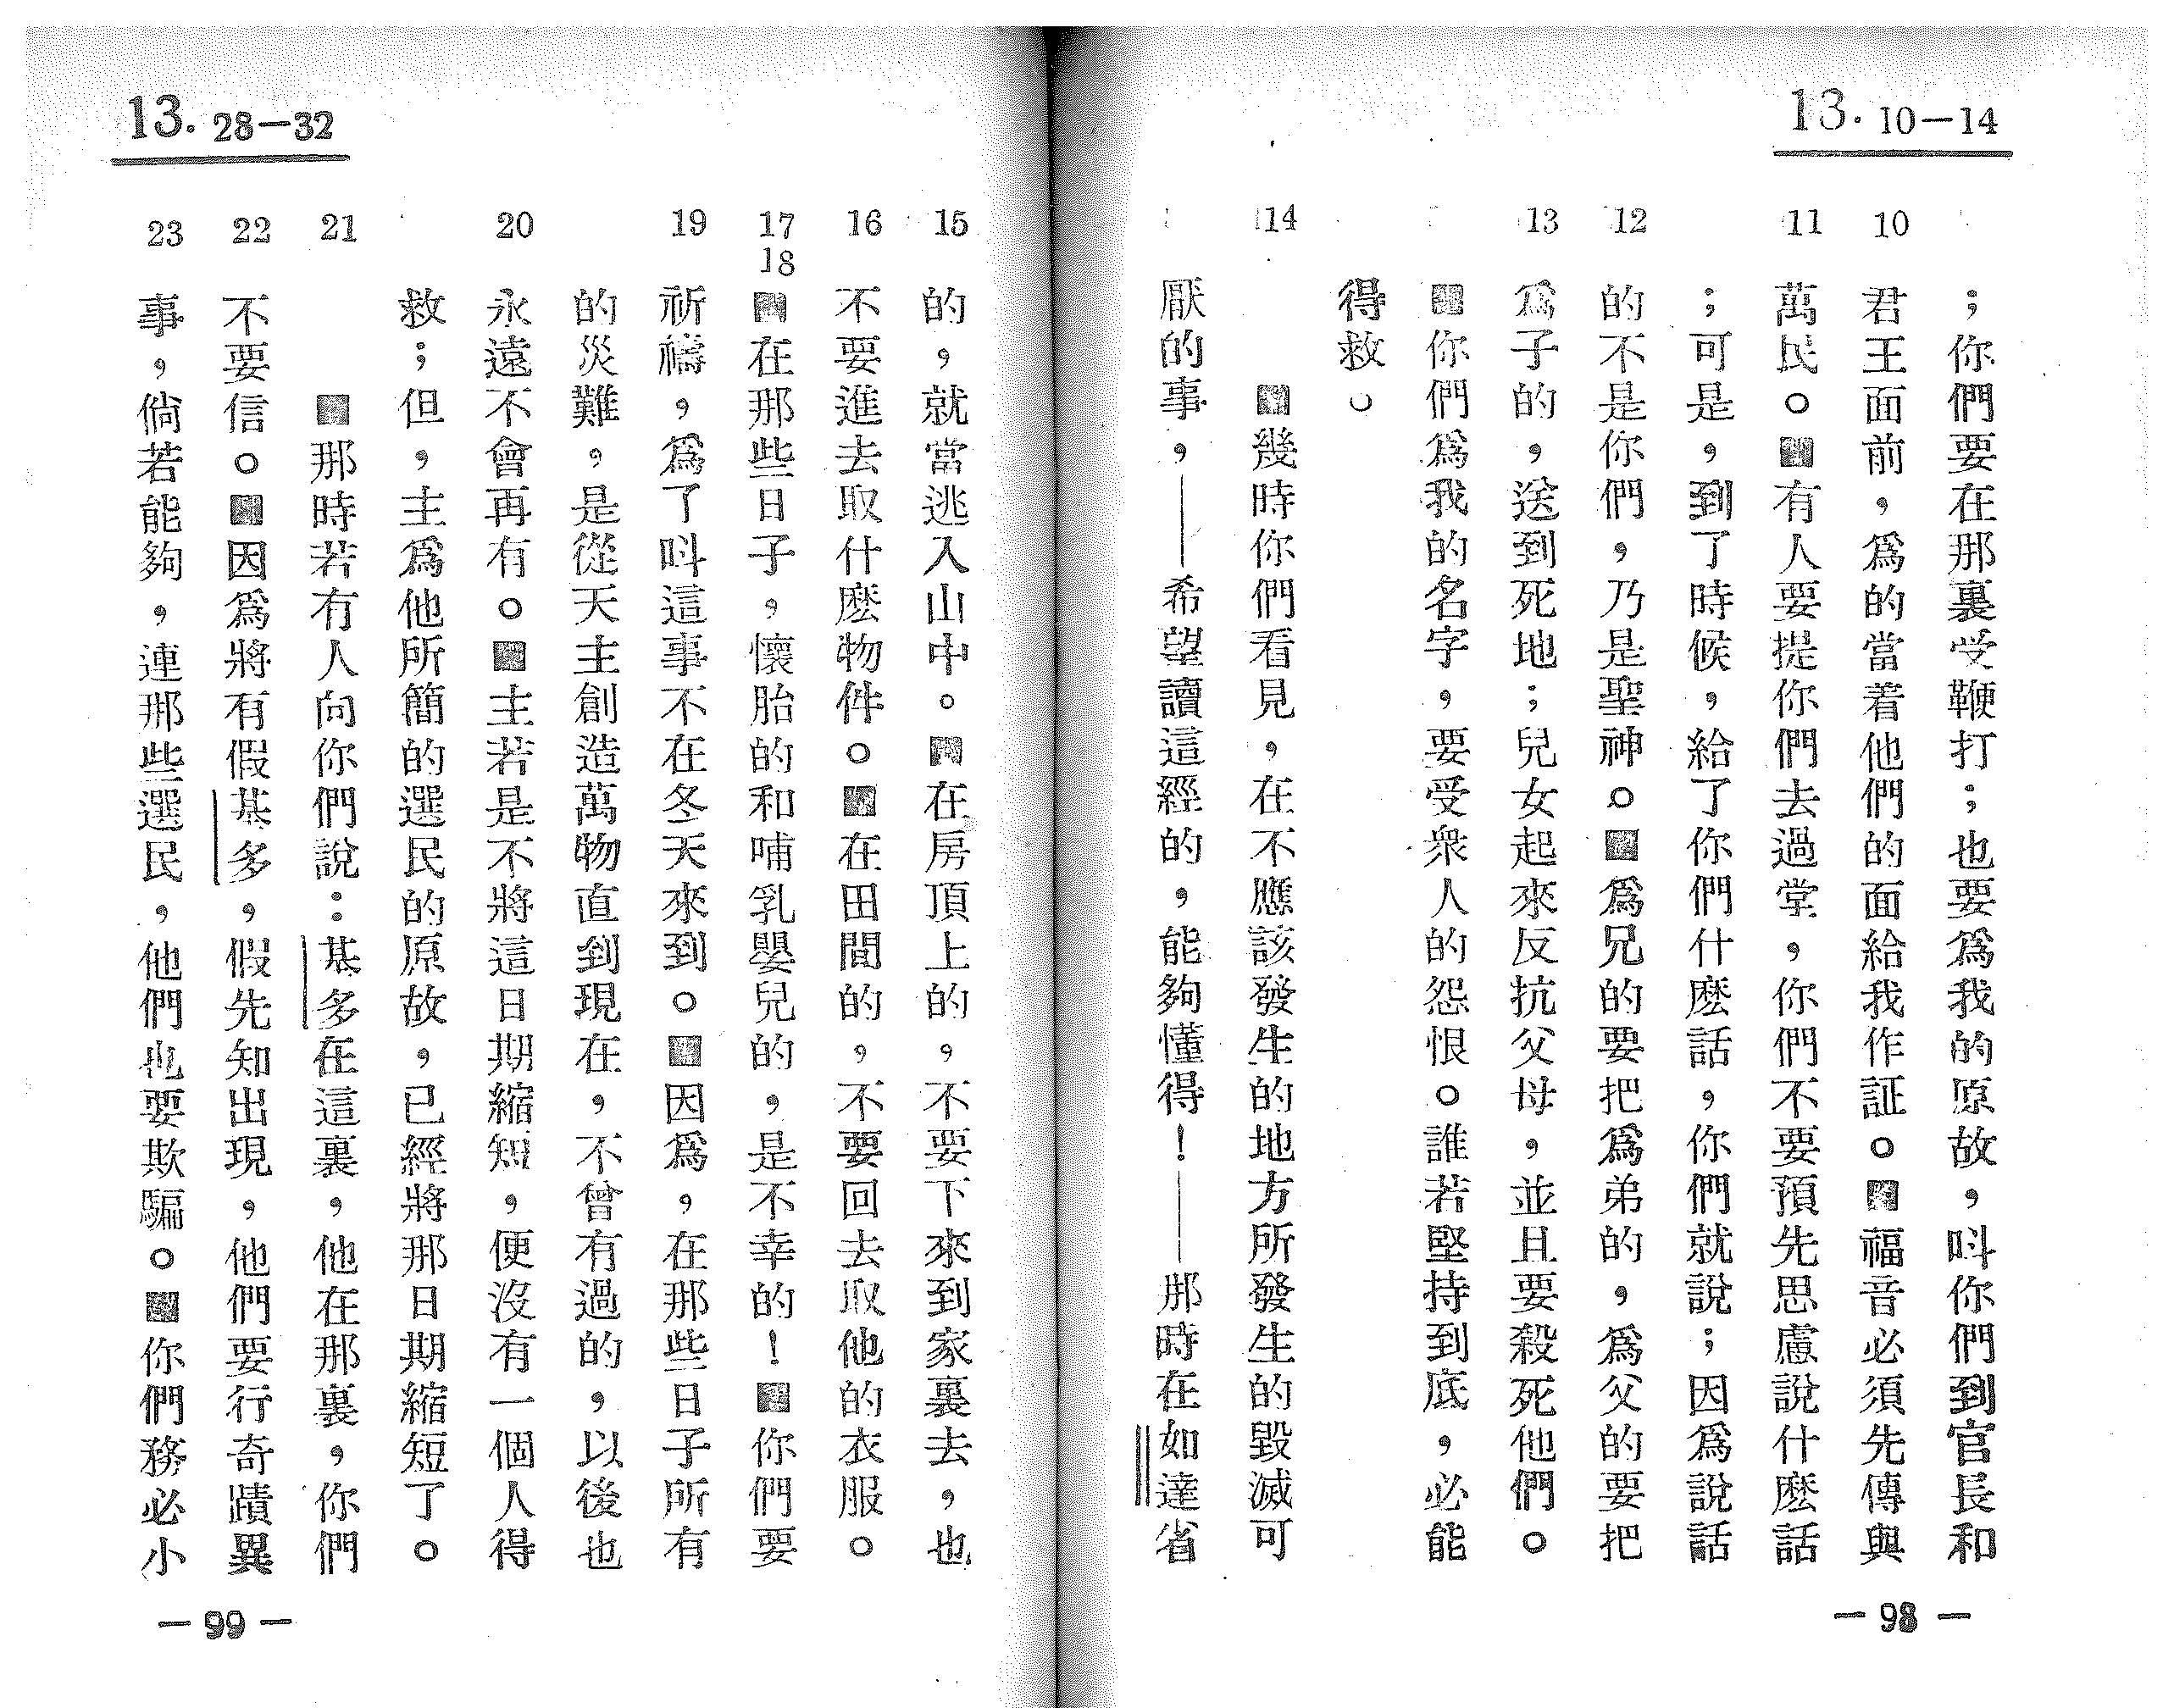 13. 10—14
；你們要在那裏受鞭打；也要爲我的原故，呌你們到官長和
10
君王面前，爲的當着他們的面給我作証。福音必須先傳與
11
萬民。有人要提你們去過堂，你們不要預先思慮說什麽話
；可是，到了時候，給了你們什麽話，你們就說；因爲說話
12
的不是你們，乃是聖神。爲兄的要把爲弟的，爲父的要把
13
爲子的，送到死地；兒女起來反抗父母，並且要殺死他們。
你們爲我的名字，要受衆人的怨恨。誰若堅持到底，必能
得救。
14
幾時你們看見，在不應該發生的地方所發生的毀滅可
厭的事，——希望讀這經的，能夠懂得！——那時在如達省
— 98 —
13. 28—32
15
的，就當逃入山中。在房頂上的，不要下來到家裏去，也
16
不要進去取什麽物件。在田間的，不要回去取他的衣服。
17
18
在那些日子，懷胎的和哺乳嬰兒的，是不幸的！你們要
19
祈禱，爲了呌這事不在冬天來到。因爲，在那些日子所有
的災難，是從天主創造萬物直到現在，不曾有過的，以後也
20
永遠不會再有。主若是不將這日期縮短，便沒有一個人得
救；但，主爲他所簡的選民的原故，已經將那日期縮短了。
21
那時若有人向你們說：基多在這裏，他在那裏，你們
22
不要信。因爲將有假基多，假先知出現，他們要行奇蹟異
23
事，倘若能夠，連那些選民，他們也要欺騙。你們務必小
— 99 —